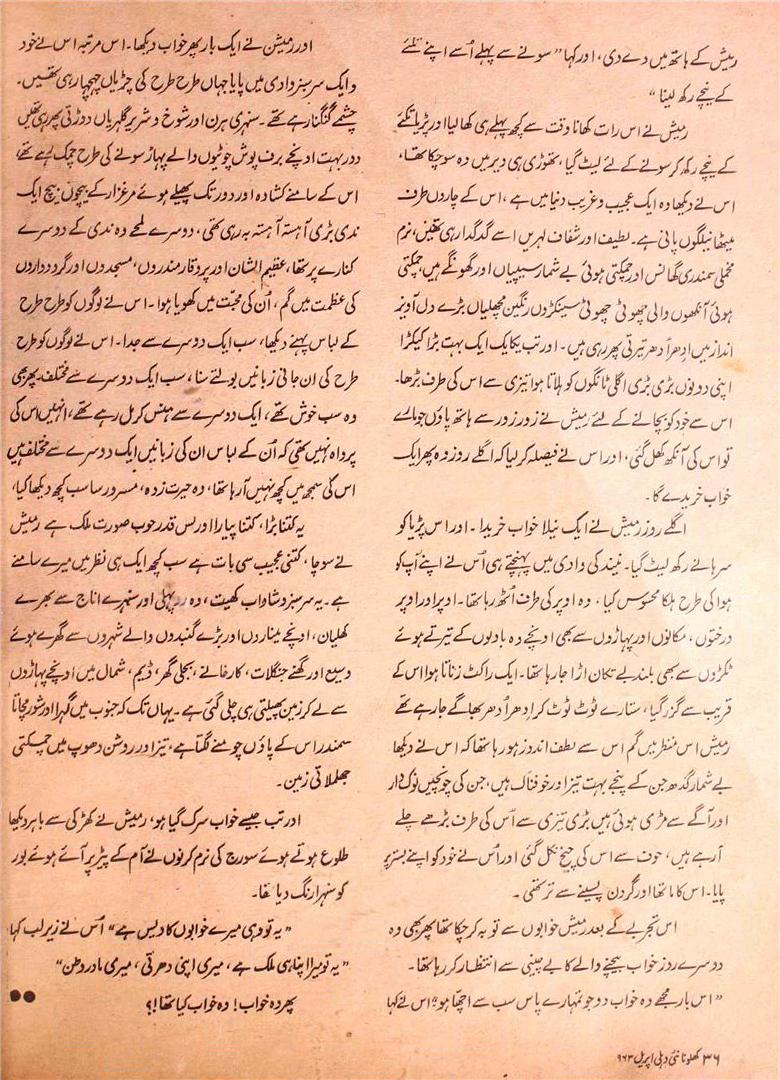 رمیش کے ہاتھ میں دے دی، اور کہا ”سونے سے پہلے اُسے اپنے تکئے
کے نیچے رکھ لینا“
رمیش نے اس رات کھانا وقت سے کچھ پہلے ہی کھا لیا اور پڑیا تکئے
کے نیچے رکھ کر سونے کے لئے لیٹ گیا، تھوڑی ہی دیر میں وہ سو چکا تھا،
اس نے دیکھا وہ ایک عجیب و غریب دنیا میں ہے، اس کے چاروں طرف
میٹھا نیلگوں پانی ہے۔ لطیف اور شفاف لہریں اسے گدگدا رہی تھیں، نرم
مخملی سمندری گھانس اور چمکتی ہوئی بے شمار سیپیاں اور گھونگے ہیں، چمکتی
ہوئی آنکھوں والی چھوٹی چھوٹی سینکڑوں رنگین مچھلیاں بڑے دل آویز
انداز میں ادھر اُدھر تیرتی پھر رہی ہیں۔ اور تب یکایک ایک بہت بڑا کیکڑا
اپنی دونوں بڑی بڑی اگلی ٹانگوں کو ہلاتا ہوا تیزی سے اس کی طرف بڑھا۔
اس سے خود کو بچانے کے لئے رمیش نے زور زور سے ہاتھ پاؤں جو مارے
تو اس کی آنکھ کھل گئی، اور اس نے فیصلہ کر لیا کہ اگلے روز وہ پھر ایک
خواب خریدے گا۔
اگلے روز رمیش نے ایک نیلا خواب خریدا۔ اور اس پڑیا کو
سرہانے رکھ لیٹ گیا۔ نیند کی وادی میں پہنچتے ہی اُس نے اپنے آپ کو
ہوا کی طرح ہلکا محسوس کیا، وہ اوپر کی طرف اُٹھ رہا تھا۔ اوپر اور اوپر
درختوں، مکانوں اور پہاڑوں سے بھی اونچے وہ بادلوں کے تیرتے ہوئے
ٹکڑوں سے بھی بلند بے تکان اڑا جا رہا تھا۔ ایک راکٹ زناتا ہوا اس کے
قریب سے گزر گیا، ستارے ٹوٹ ٹوٹ کر ادھر اُدھر بھاگے جا رہے تھے
رمیش اس منظر میں گم اس سے لطف اندوز ہو رہا تھا کہ اس نے دیکھا
بے شمار گدھ جن کے پنجے بہت تیز اور خوفناک ہیں، جن کی چونچیں نوک دار
اور آگے سے مڑی ہوئی ہیں بڑی تیزی سے اُس کی طرف بڑھے چلے
آ رہے ہیں، خوف سے اس کی چیخ نکل گئی اور اُس نے خود کو اپنے بستر پر
پایا۔ اس کا ماتھا اور گردن پسینے سے تر تھی۔
اس تجربے کے بعد رمیش خوابوں سے توبہ کر چکا تھا پھر بھی وہ
دوسرے روز خواب بیچنے والے کا بے چینی سے انتظار کر رہا تھا۔
”اس بار مجھے وہ خواب دو جو تمہارے پاس سب سے اچھا ہو“ اس نے کہا
اور رمیش نے ایک بار پھر خواب دیکھا۔ اس مرتبہ اس نے خود
و ایک سرسبز وادی میں پایا جہاں طرح طرح کی چڑیاں چہچہا رہی تھیں۔
چشمے گنگنا رہے تھے۔ سنہری ہرن اور شوخ و شریر گلہریاں دوڑتی پھر رہی تھیں
دور بہت اونچے برف پوش چوٹیوں والے پہاڑ سونے کی طرح چمک رہے تھے،
اس کے سامنے کشادہ اور دور تک پھیلے ہوئے مرغزار کے بیچوں بیچ ایک
ندی بڑی آہستہ آہستہ بہ رہی تھی، دوسرے لمحے وہ ندی کے دوسرے
کنارے پر تھا، عظیم الشان اور پروقار مندروں، مسجدوں اور گردواروں
کی عظمت میں گم، اُن کی محبت میں کھویا ہوا۔ اس نے لوگوں کو طرح طرح
کے لباس پہنے دیکھا، سب ایک دوسرے سے جدا۔ اس نے لوگوں کو طرح
طرح کی ان جانی زبانیں بولتے سنا، سب ایک دوسرے سے مختلف۔ پھر بھی
وہ سب خوش تھے، ایک دوسرے سے ہنس کر مل رہے تھے، انہیں اس کی
پرواہ نہیں تھی کہ اُن کے لباس ان کی زبانیں ایک دوسرے سے مختلف ہیں
اس کی سمجھ میں کچھ نہیں آ رہا تھا، وہ حیرت زدہ، مسرور سا سب کچھ دیکھا کیا،
یہ کتنا بڑا، کتنا پیارا اور بس قدر خوب صورت ملک ہے رمیش
نے سوچا، کتنی عجیب سی بات ہے سب کچھ ایک ہی نظر میں میرے سامنے
ہے۔ یہ سرسبز و شاداب کھیت، وہ روپہلی اور سنہرے اناج سے بھرے
کھلیان، اونچے میناروں اور بڑے گنبدوں والے شہروں سے گھرے ہوئے
وسیع اور گھنے جنگلات، کارخانے، بجلی گھر، ڈیم، شمال میں اونچے پہاڑوں
سے لے کر زمین پھیلتی ہی چلی گئی ہے۔ یہاں تک کہ جنوب میں گہرا اور شور مچاتا
سمندر اس کے پاؤں چومنے لگتا ہے، تیز اور روشن دھوپ میں چمکتی
جھلملاتی زمین۔
اور تب جیسے خواب سرک گیا ہو، رمیش نے کھڑکی سے باہر دیکھا
طلوع ہوتے ہوئے سورج کی نرم کرنوں نے آم کے پیڑ پر آئے ہوئے بور
کو سنہرا رنگ دیا تھا۔
”یہ تو وہی میرے خوابوں کا دیس ہے“ اُس نے زیر لب کہا
”یہ تو میرا اپنا ہی ملک ہے، میری اپنی دھرتی، میری مادر وطن“
پھر وہ خواب! وہ خواب کیا تھا!؟
۳۶ کھلونا نئی دہلی اپریل ۶۶۳